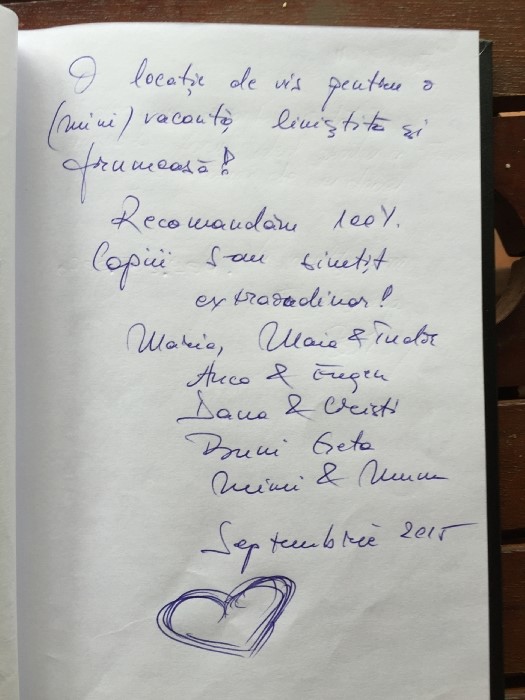 O locație de vis pentru o
(mini) vacanță liniștită și
frumoasă!
Recomandăm 100%.
Copiii s-au simțit
extraordinar!
Maria, Maia & Tudor
Anca & Eugen
Dana & Cristi
Buni Geta
Mimi &
Septembrie 2015